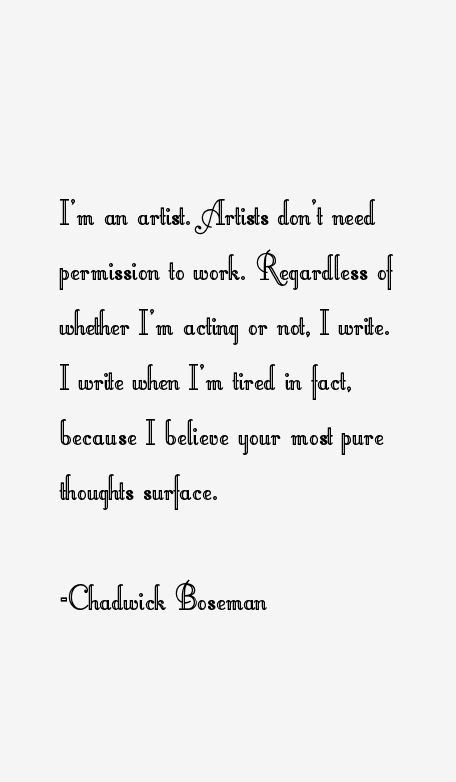 I'm an artist. Artists don't need
permission to work. Regardless of
whether I'm acting or not, I write.
I write when I'm tired in fact,
because I believe your most pure
thoughts surface.
-Chadwick Boseman